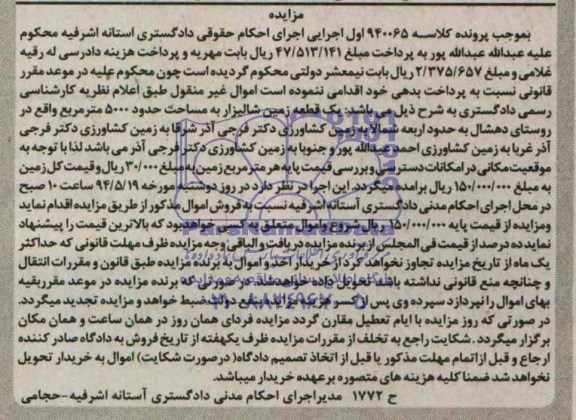 مزایده
بموجب پرونده کلاسه ۹۴۰۰۶۵ اول اجرایی اجرای احکام حقوقی دادگستری آستانه اشرفیه محکوم
علیه عبدالله عبدالله پور به پرداخت مبلغ ۴۷/۵۱۳/۱۴۱ ریال بابت مهریه و پرداخت هزینه دادرسی له رقیه
غلامی و مبلغ ۲/۳۷۵/۶۵۷ ریال بابت نیمعشر دولتی محکوم گردیده است چون محکوم علیه در موعد مقرر
قانونی نسبت به پرداخت بدهی خود اقدامی ننموده است اموال غیر منقول طبق اعلام نظریه کارشناسی
رسمی دادگستری به شرح ذیل می باشد: یک قطعه زمین شالیزار به مساحت حدود ۵۰۰۰ مترمربع واقع در
روستای دهشال به حدود اربعه شمالا به زمین کشاورزی دکتر فرجی آذر شرقا به زمین کشاورزی دکتر فرجی
آذر غربا به زمین کشاورزی احمد عبدالله پور و جنوبا به زمین کشاورزی دکتر فرجی آذر می باشد لذا با توجه به
موقعیت مکانی در امکانات دسترسی و بررسی قیمت پایه هر متر مربع زمین به مبلغ ۳۰/۰۰۰ ریال و قیمت کل زمین
به مبلغ ۱۵۰/۰۰۰/۰۰۰ ریال برآمد میگردد. این اجرا در نظر دارد در روز دوشنبه مورخه ۹۴/۵/۱۹ ساعت ۱۰ صبح
در محل اجرای احکام مدنی دادگستری آستانه اشرفیه نسبت به فروش اموال مذکور از طریق مزایده اقدام نماید
و مزایده از قیمت پایه ۱۵۰/۰۰۰/۰۰۰ ریال شروع و اموال متعلق به کسی خواهد بود که بالاترین قیمت را پیشنهاد
نماید ده درصد از قیمت فی المجلس از برنده مزایده دریافت و الباقی وجه مزایده ظرف مهلت قانونی که حداکثر
یک ماه از تاریخ مزایده تجاوز نخواهد کرد از خریدار اخذ و اموال به برنده مزایده طبق قانون و مقررات انتقال
و چنانچه منع قانونی نداشته باشد تحویل داده خواهد شد. در صورتی که برنده مزایده در موعد مقرر بقیه
بهای اموال را نپردازد سپرده وی پس از کسر هزینه مزایده به نفع دولت ضبط خواهد و مزایده تجدید میگردد.
در صورتی که روز مزایده با ایام تعطیل مقارن گردد مزایده فردای همان روز در همان ساعت و همان مکان
برگزار میگردد. شکایت راجع به تخلف از مقررات مزایده ظرف یکهفته از تاریخ فروش به دادگاه صادر کننده
ارجاع و قبل از اتمام مهلت مذکور یا قبل از اتخاذ تصمیم دادگاه (در صورت شکایت) اموال به خریدار تحویل
نخواهد شد ضمنا کلیه هزینه های متصوره بر عهده خریدار میباشد.
ح ۱۷۷۲ مدیر اجرای احکام مدنی دادگستری آستانه اشرفیه-حجامی